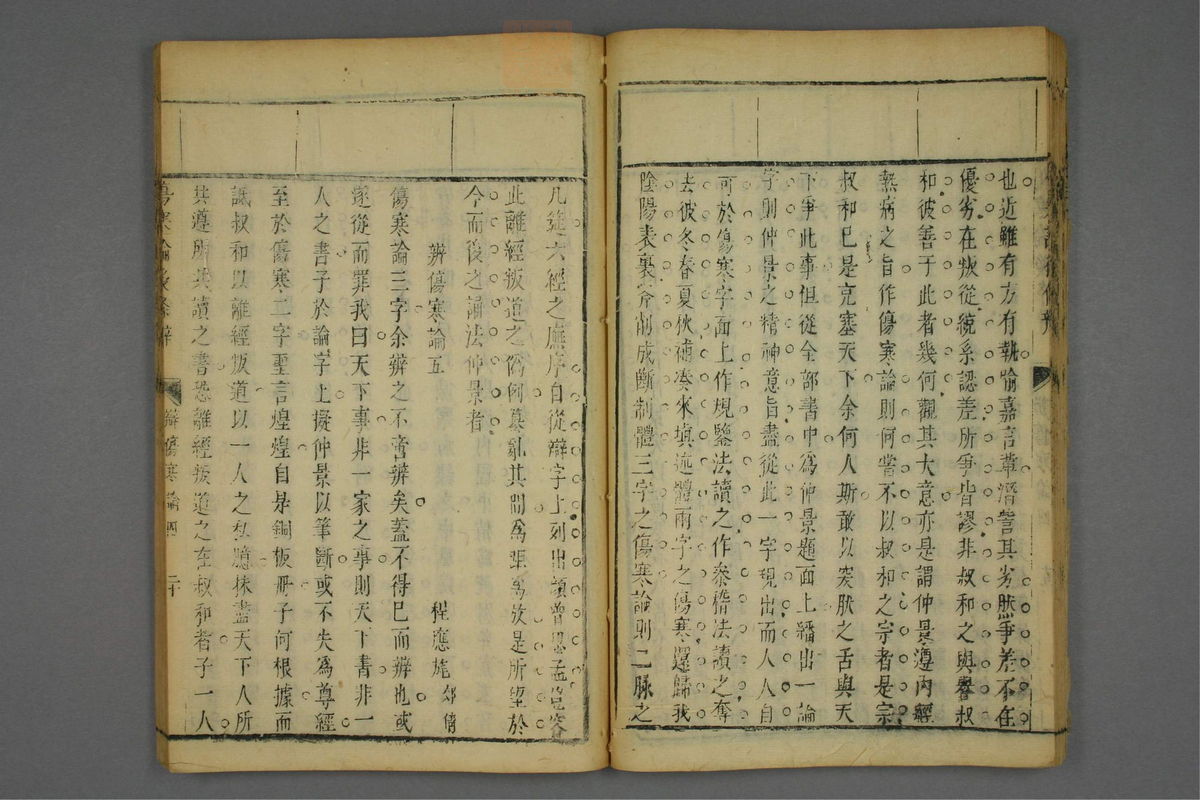 也近雖有方有執喻嘉言輩潛訾其劣然爭差不在
優劣在叛從統系認差所爭皆謬非叔和之與譽叔
和彼善于此者幾何觀其大意亦是謂仲景遵內經
熱病之旨作傷寒論則何嘗不以叔和之宗者是宗
叔和已是充塞天下余何人斯敢以突肰之舌與天
下爭此事但從全部書中為仲景題面上繙出一論
字則仲景之精神意旨盡從此一字現出而人人自
可於傷寒字面上作規鑒法讀之作叅稽法讀之奪
去彼冬春夏秋補湊來填迹體兩字之傷寒還歸我
陰陽表裏斧削成斷制體三字之傷寒論則二脉之
凡逆六經之應序自從辯字上列出頭曾思孟豈容
此離經叛道之僞何墓亂其間為張為放是所望於
今而後之誦法仲景者
辨傷寒論五
程應旄 郊倩
傷寒論三字余辨之不啻辨矣蓋不得已而辨也或
遂從而罪我曰天下事非一家之事則天下書非一
人之書子於論字上擬仲景以筆斷或不失為尊經
至於傷寒二字聖言煌煌自是銅板冊子何根據而
詆叔和以離經叛道以一人之私臆抹盡天下人所
共遵所共讀之書恐離經叛道之在叔和者子一人
傷寒論後條辨
辯傷寒論四
二十